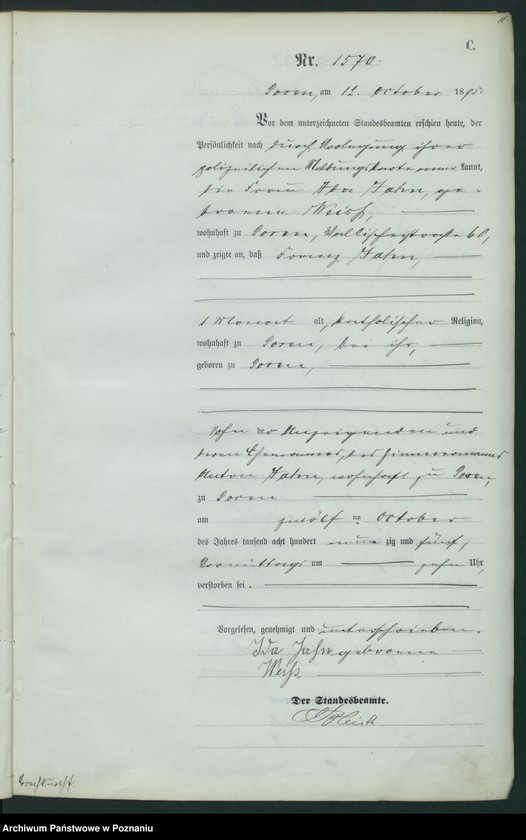 C.
Nr. 1570.
Posen, am 12. October 1895.
Vor dem unterzeichneten Standesbeamten erschien heute, der
Persönlichkeit nach durch Vorlegung ihrer
polizeilichen Meldungskarte kannt,
die Frau Ida Jahn, ge-
borene Weiß,
wohnhaft zu Posen, Wallischeistraße 60,
und zeigte an, daß Franz Jahn,
1 Monat alt, katholischer Religion,
wohnhaft zu Posen, bei ihr,
geboren zu Posen,
Sohn der Anzeigenden und
deren Ehemannes, des Zimmermanns
Anton Jahn, wohnhaft zu Posen,
zu Posen
am zwölf ten October
des Jahres tausend acht hundert neun zig und fünf,
Vormittags um zehn Uhr,
verstorben sei.
Vorgelesen, genehmigt und unterschrieben.
Ida Jahn geborene
Weiß.
Der Standesbeamte.
Archiwum Państwowe w Poznaniu